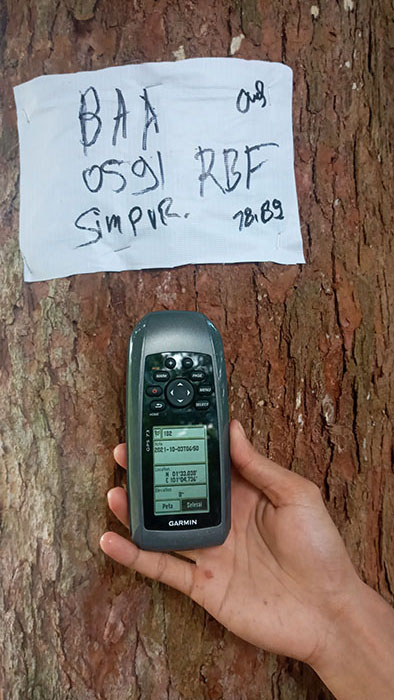 BAA
0591 RBF
SimPUR. 78,89
MARK PAGE
MENU
HOME SELECT
GPS 73
102
2021-10-03T06:50
Location
N 01°33.038'
E 101°04.736'
Elevation
Peta Selesai
GARMIN